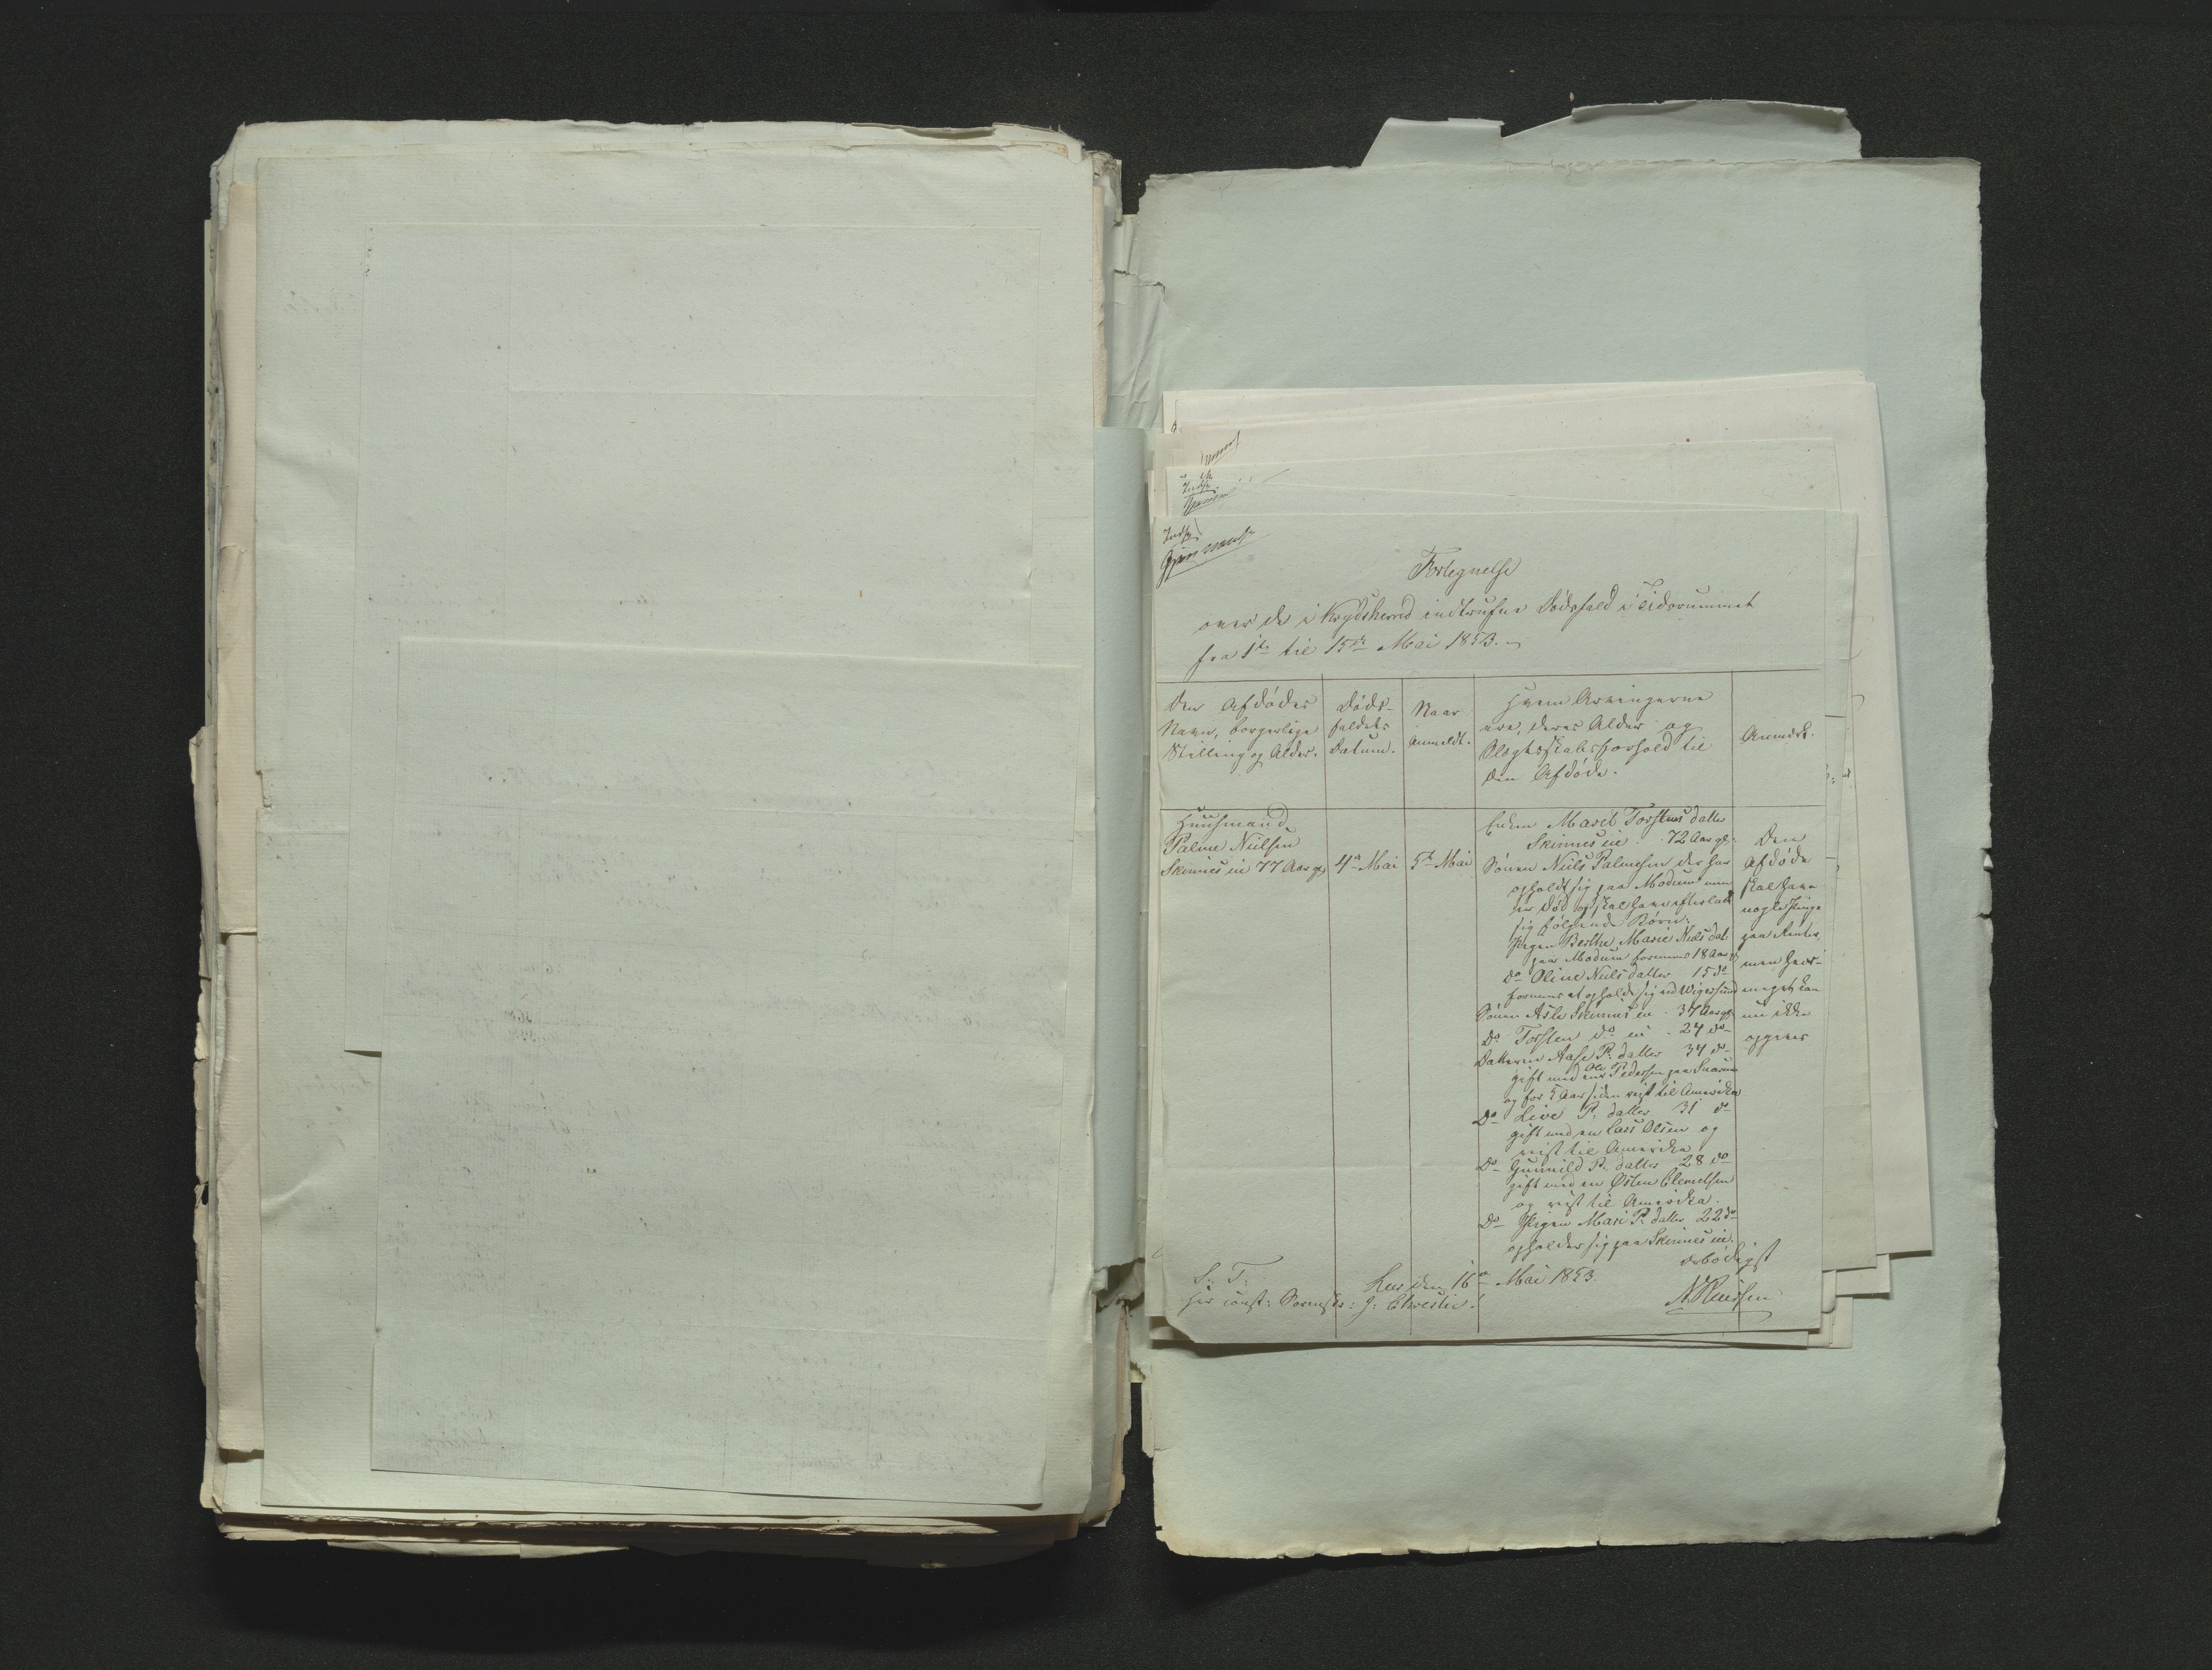 Indf.
Fortegnelse
over de i Krydsherred indtrufne Dødsfald i Tidsrummet
fra 1ste til 15de Mai 1853.
Den Afdødes
Navn, borgerlige
Stilling og Alder.
Døds-
faldets
Datum.
Naar
anmeldt.
Hvem Arvingerne
ere, deres Alder og
Slægtskabsforhold til
den Afdøde.
Anmærk.
Huusmand
Palme Nielsen
Skinnes eie 77 Aar gl.
4de Mai
5te Mai
Enken Marit Torstensdatter
Skinnes eie 72 Aar gl.
Sønnen Niels Palmesen der har
opholdt sig paa Modum men
er død og skal have efterladt
sig følgende Børn:
Pigen Berthe Marie Niels dat.
paa Modum formenes 18 Aar
do Oline Nielsdatter 15 do
formenes at opholde sig ved Wigersund
Sønnen Asle Skinnes eie 37 Aar gl.
Do Torsten do eie 24 do
Datteren Aase P. datter 34 do
gift med en Ole Pedersen paa Snarum
og for 5 Aar siden reist til Amerika
Do Live P. datter 31 do
gift med en Lars Olsen og
reist til Amerika
Do Gunnild P. datter 28 do
gift med en Østen Clemetsen
og reist til Amerika.
Do Pigen Mari P. datter 22 do
opholder sig paa Skinnes eie.
Den
Afdøde
skal have
nogle Penge
paa Renter,
men hvor-
meget kan
nu ikke
opgives
Lees den 16de Mai 1853.
ærbødigst
N. Knudsen
S. T.
Hr const: Sorenskr: J: Christie!